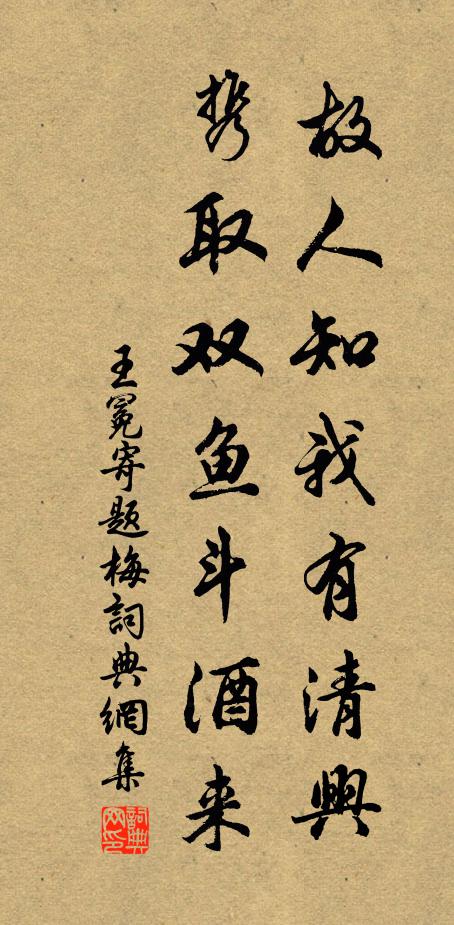 故人知我有清興
携取双鱼斗酒来
王冕寄題梅詞典網集
詞典网印